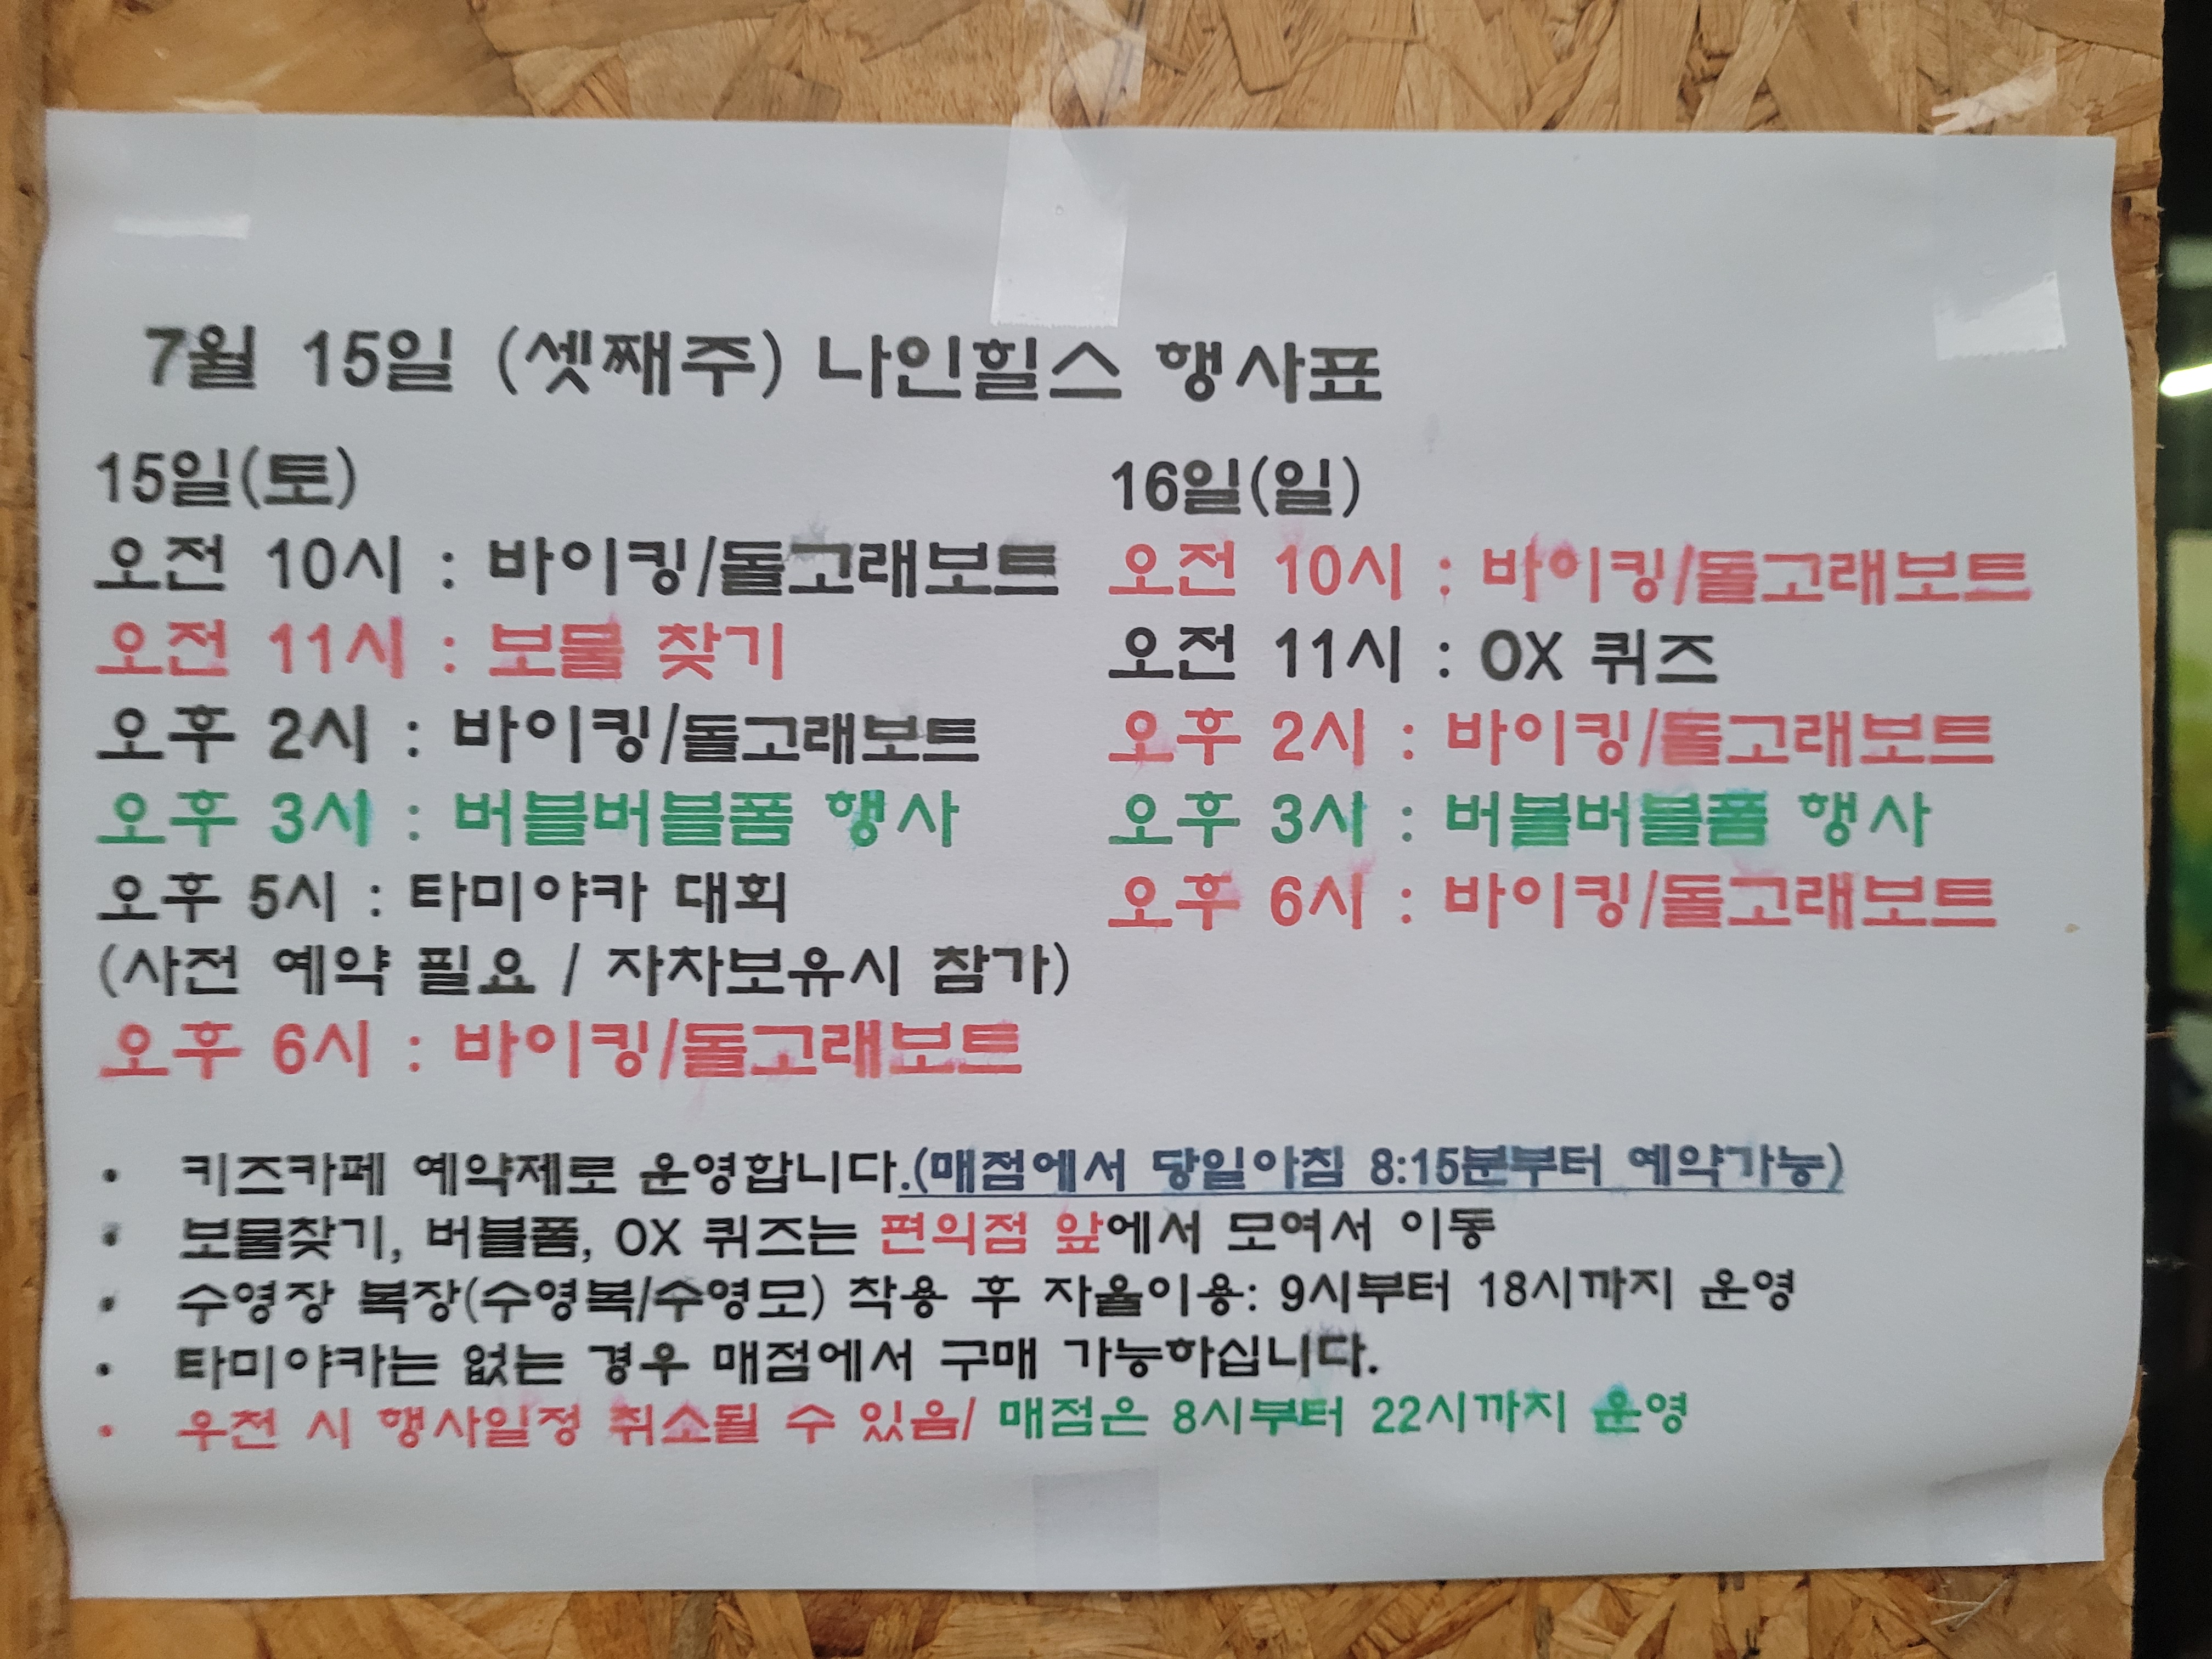 7월 15일 (셋째주) 나인힐스 행사표
15일(토)
오전 10시 : 바이킹/돌고래보트
오전 11시 : 보물 찾기
오후 2시 : 바이킹/돌고래보트
오후 3시 : 버블버블폼 행사
오후 5시 : 타미야카 대회
(사전 예약 필요 / 자차보유시 참가)
오후 6시 : 바이킹/돌고래보트
16일(일)
오전 10시 : 바이킹/돌고래보트
오전 11시 : OX 퀴즈
오후 2시 : 바이킹/돌고래보트
오후 3시 : 버블버블폼 행사
오후 6시 : 바이킹/돌고래보트
• 키즈카페 예약제로 운영합니다.(매점에서 당일아침 8:15분부터 예약가능)
• 보물찾기, 버블폼, OX 퀴즈는 편의점 앞에서 모여서 이동
• 수영장 복장(수영복/수영모) 착용 후 자율이용: 9시부터 18시까지 운영
• 타미야카는 없는 경우 매점에서 구매 가능하십니다.
• 우천 시 행사일정 취소될 수 있음/ 매점은 8시부터 22시까지 운영